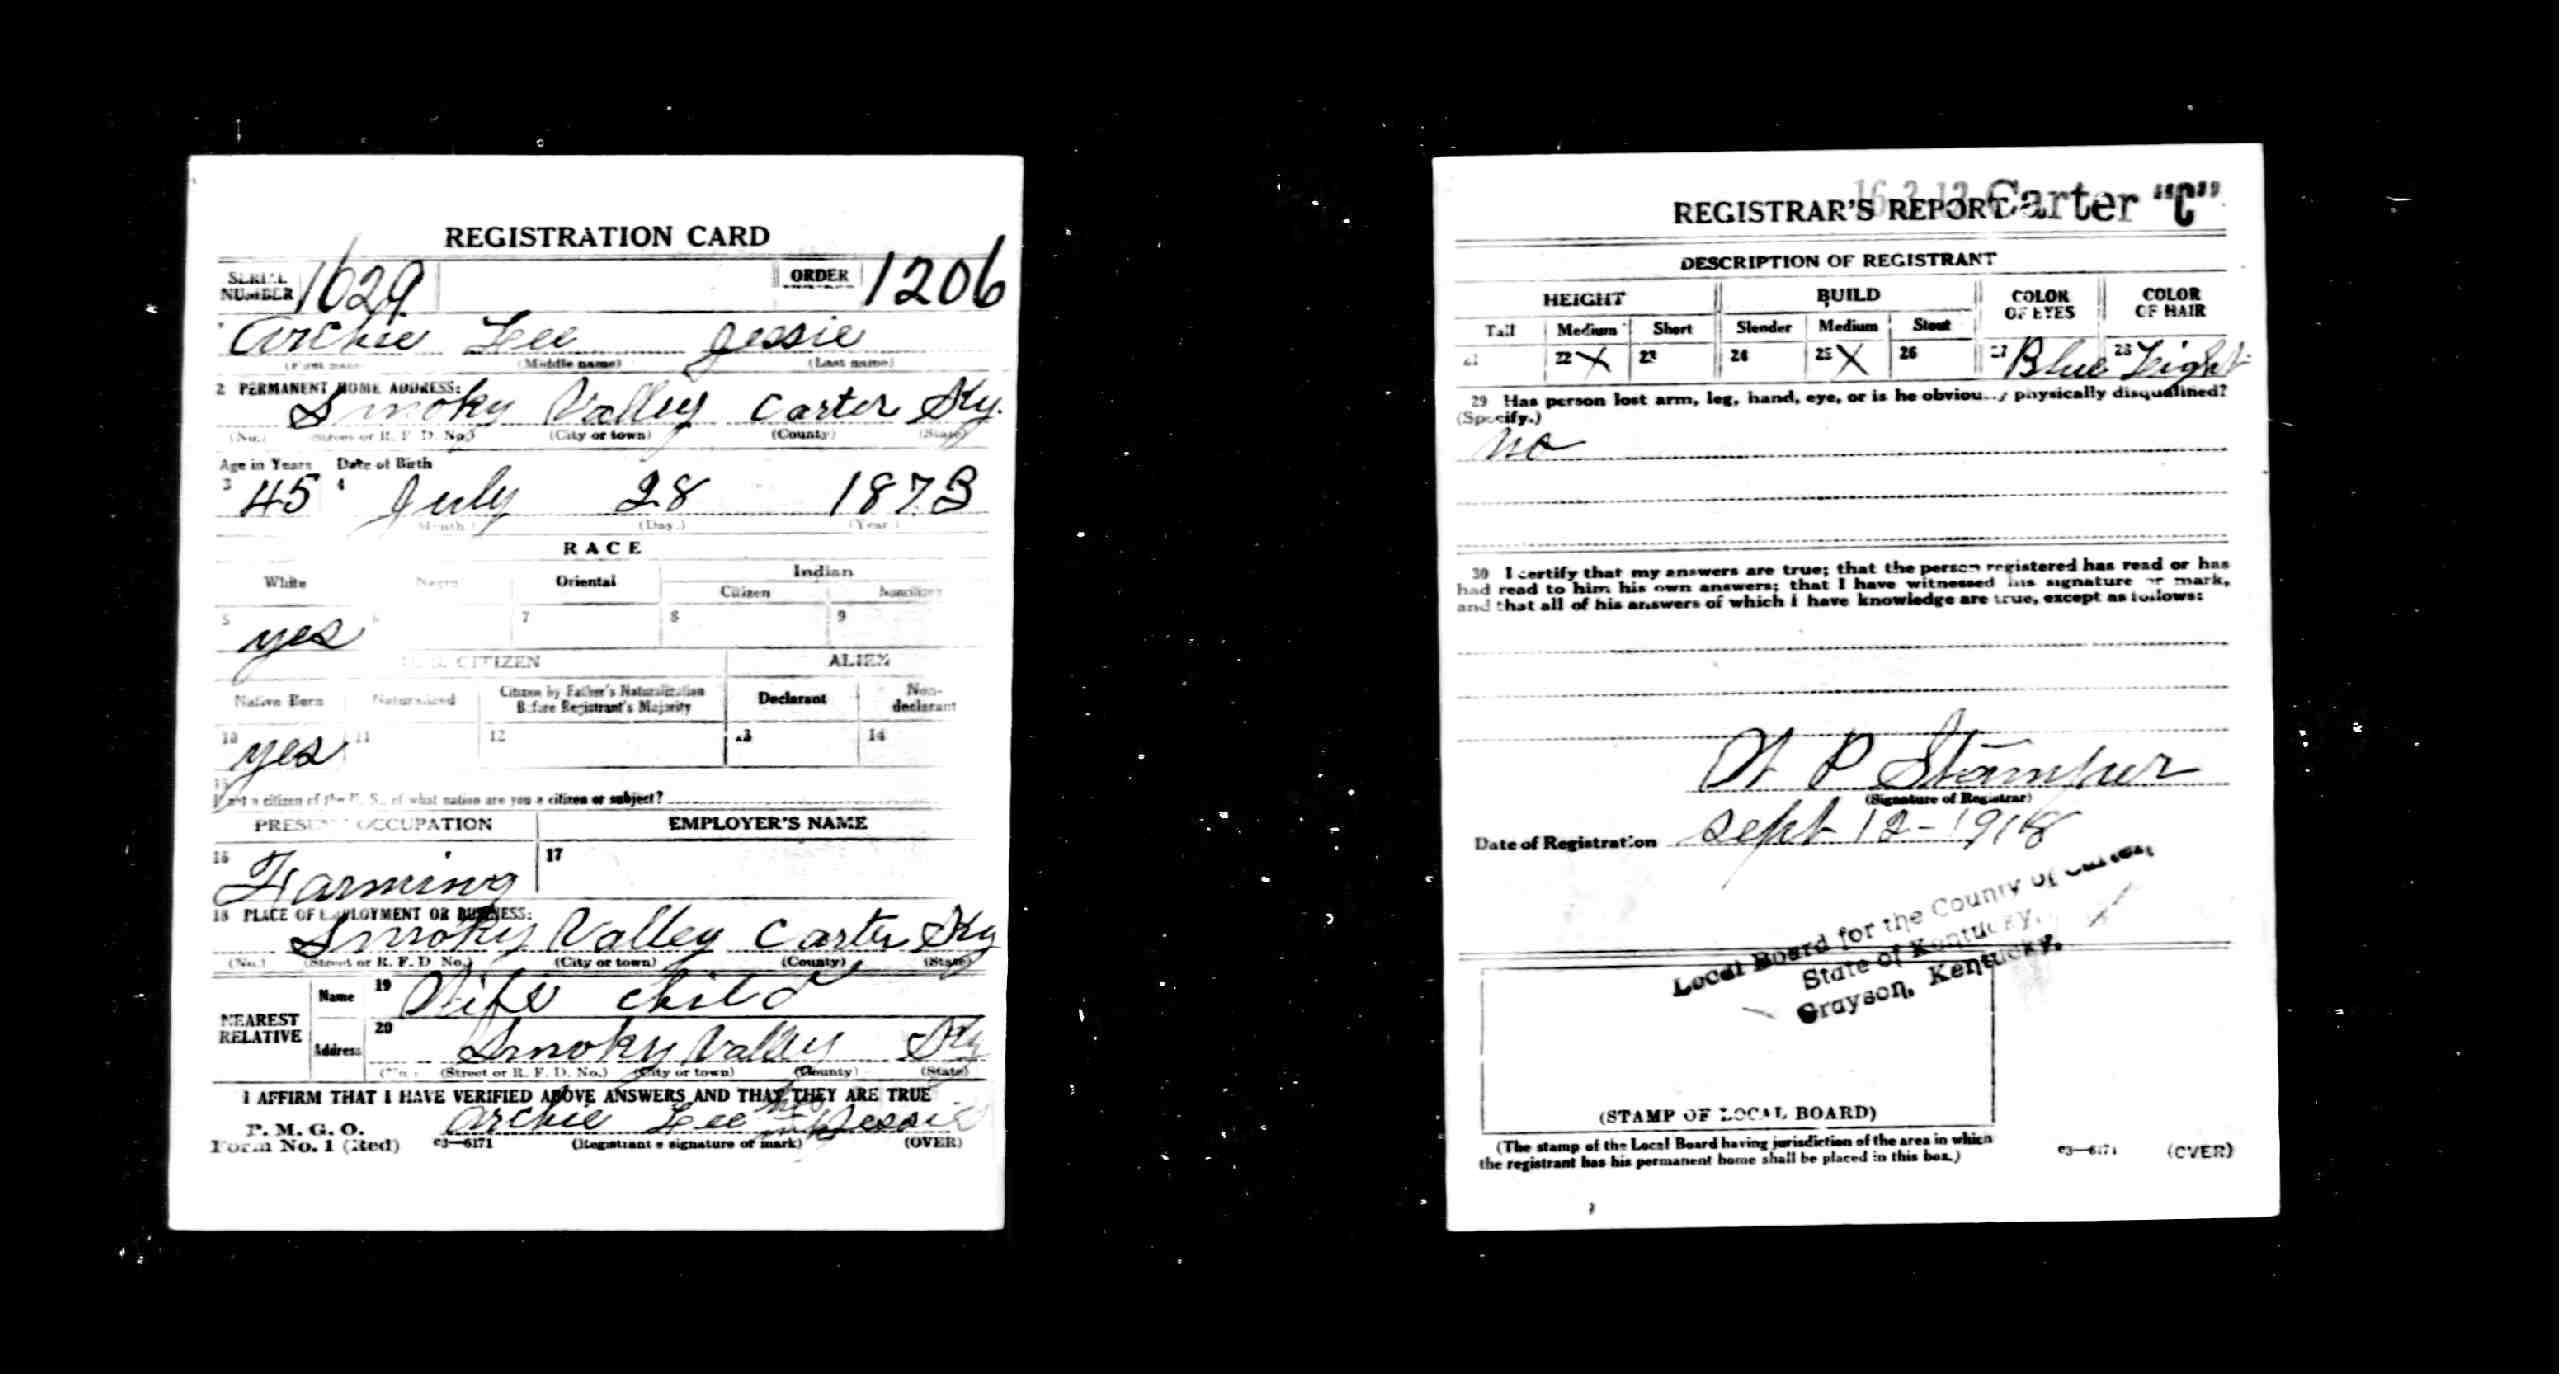 REGISTRATION CARD
SERIAL NUMBER 1629 ORDER 1206
Archie Lee Jessie
(First name) (Middle name) (Last name)
2 PERMANENT HOME ADDRESS:
Smoky Valley Carter Ky.
(No.) (Street or R. F. D. No.) (City or town) (County) (State)
Age in Years Date of Birth
3 45 4 July 28 1873
(Month.) (Day.) (Year.)
RACE
White Negro Oriental Indian
Citizen Noncitizen
5 yes 6 7 8 9
U. S. CITIZEN ALIEN
Native Born Naturalized Citizen by Father's Naturalization Before Registrant's Majority Declarant Non-declarant
10 yes 11 12 13 14
15
If not a citizen of the U. S., of what nation are you a citizen or subject?
PRESENT OCCUPATION EMPLOYER'S NAME
16 Farming 17
18 PLACE OF EMPLOYMENT OR BUSINESS:
Smoky Valley Carter Ky
(No.) (Street or R. F. D. No.) (City or town) (County) (State)
NEAREST RELATIVE
Name 19 Wife child
Address 20 Smoky Valley Ky
(No.) (Street or R. F. D. No.) (City or town) (County) (State)
I AFFIRM THAT I HAVE VERIFIED ABOVE ANSWERS AND THAT THEY ARE TRUE
P. M. G. O. Archie Lee Jessie
Form No. 1 (Red) 03—6171 (Registrant's signature or mark) (OVER)
Carter "C"
REGISTRAR'S REPORT
DESCRIPTION OF REGISTRANT
HEIGHT BUILD COLOR OF EYES COLOR OF HAIR
Tall Medium Short Slender Medium Stout
21 22 X 23 24 25 X 26 27 Blue 28 Light
29 Has person lost arm, leg, hand, eye, or is he obviously physically disqualified?
(Specify.)
no
30 I certify that my answers are true; that the person registered has read or has
had read to him his own answers; that I have witnessed his signature or mark,
and that all of his answers of which I have knowledge are true, except as follows:
W P Stamper
(Signature of Registrar)
Date of Registration Sept 12-1918
Local Board for the County of Carter,
State of Kentucky,
Grayson, Kentucky.
(STAMP OF LOCAL BOARD)
(The stamp of the Local Board having jurisdiction of the area in which
the registrant has his permanent home shall be placed in this box.)
03—6171 (OVER)